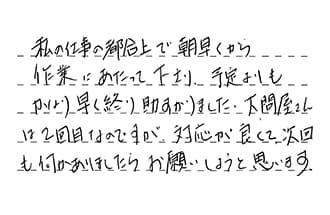 私の仕事の都合上で朝早くから
作業にあたって下さり、予定よりも
かなり早く終り助かりました。下間屋さん
は2回目なのですが、対応が良くて次回
も何かありましたらお願いしようと思います。